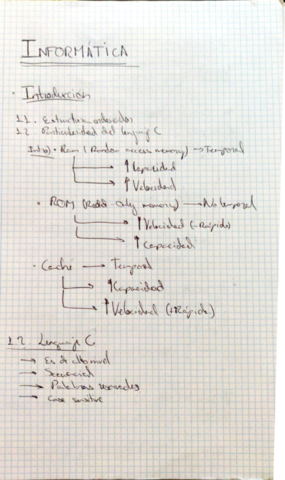 INFORMÁTICA
· Introducción
1.1. Estructura ordenador
1.2 Particularidad del lenguaje C
Intro) · Ram (Random access memory) → Temporal
→ ↑ Capacidad
→ ↑ Velocidad
· ROM (Read-Only memory) → No temporal
→ ↑ Velocidad (-Rápido)
→ ↑ Capacidad
· Caché → Temporal
→ ↑ Capacidad
→ ↑ Velocidad (+Rápida)
1.2 Lenguaje C
→ Es de alto nivel
→ Secuencial
→ Palabras reservadas
→ Case sensitive